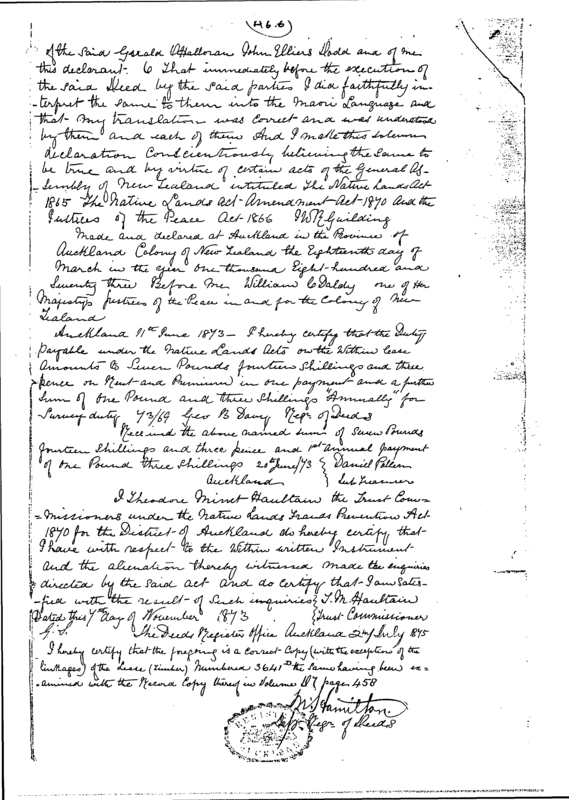 (H6.6)
of the said Gerald O'Halloran John Elliers Dodd and of me
this declarant. 6 That immediately before the execution of
the said Deed by the said parties I did faithfully in-
-terpret the same to them into the Maori Language and
that my translation was correct and was understood
by them and each of them And I make this solemn
declaration Conscientiously believing the same to
be true and by virtue of certain acts of the General As-
-sembly of New Zealand intituled The Native Lands Act
1865 The Native Lands Act Amendment Act 1870 And the
Justices of the Peace Act 1866 Guilding
Made and declared at Auckland in the Province of
Auckland Colony of New Zealand the Eighteenth day of
March in the year one thousand Eight hundred and
Seventy three Before me William C Daldy one of Her
Majestys Justices of the Peace in and for the Colony of New
Zealand
Auckland 11th June 1873 - I hereby certify that the Duty
payable under the Native Lands Acts on the Within lease
amounts to Seven Pounds fourteen shillings and three
pence on Rent and Premium in one payment and a further
sum of one Pound and three shillings "Annually" for
Survey duty 73/69 Geo B Davy Regr of Deeds
Received the above named sums of Seven Pounds
fourteen shillings and three pence and 1st annual payment
of one Pound three shillings 20th June/73 } Daniel Pollen
Auckland } Sub Treasurer
I Theodore Minet Haultain the Trust Com=
=missioners under the Native Lands Frauds Prevention Act
1870 for the District of Auckland do hereby certify that
I have with respect to the Within written Instrument
and the alienation thereby witnessed made the enquiries
directed by the said act and do certify that I am satis-
-fied with the result of such inquiries } T. M. Haultain
Dated this 7th day of November 1873 } Trust Commissioner
The Deeds Register Office Auckland 2nd July 1875
I hereby certify that the foregoing is a correct Copy (with the exception of the
) of the lease (Timber) Numbered 3641D the same having been ex-
-amined with the Record Copy thereof in Volume page 458
Hamilton
Dep. Regr of Deeds